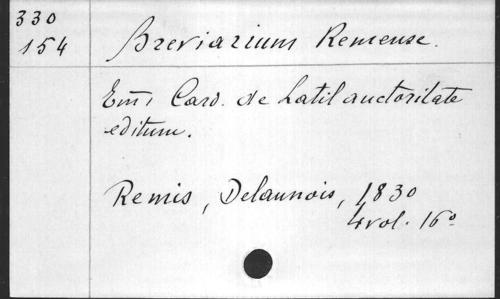 330
154
Breviarium Remense.
Em̄i Card. de Latil auctoritate
editum.
Remis, Delaunois, 1830
4 vol. 16°